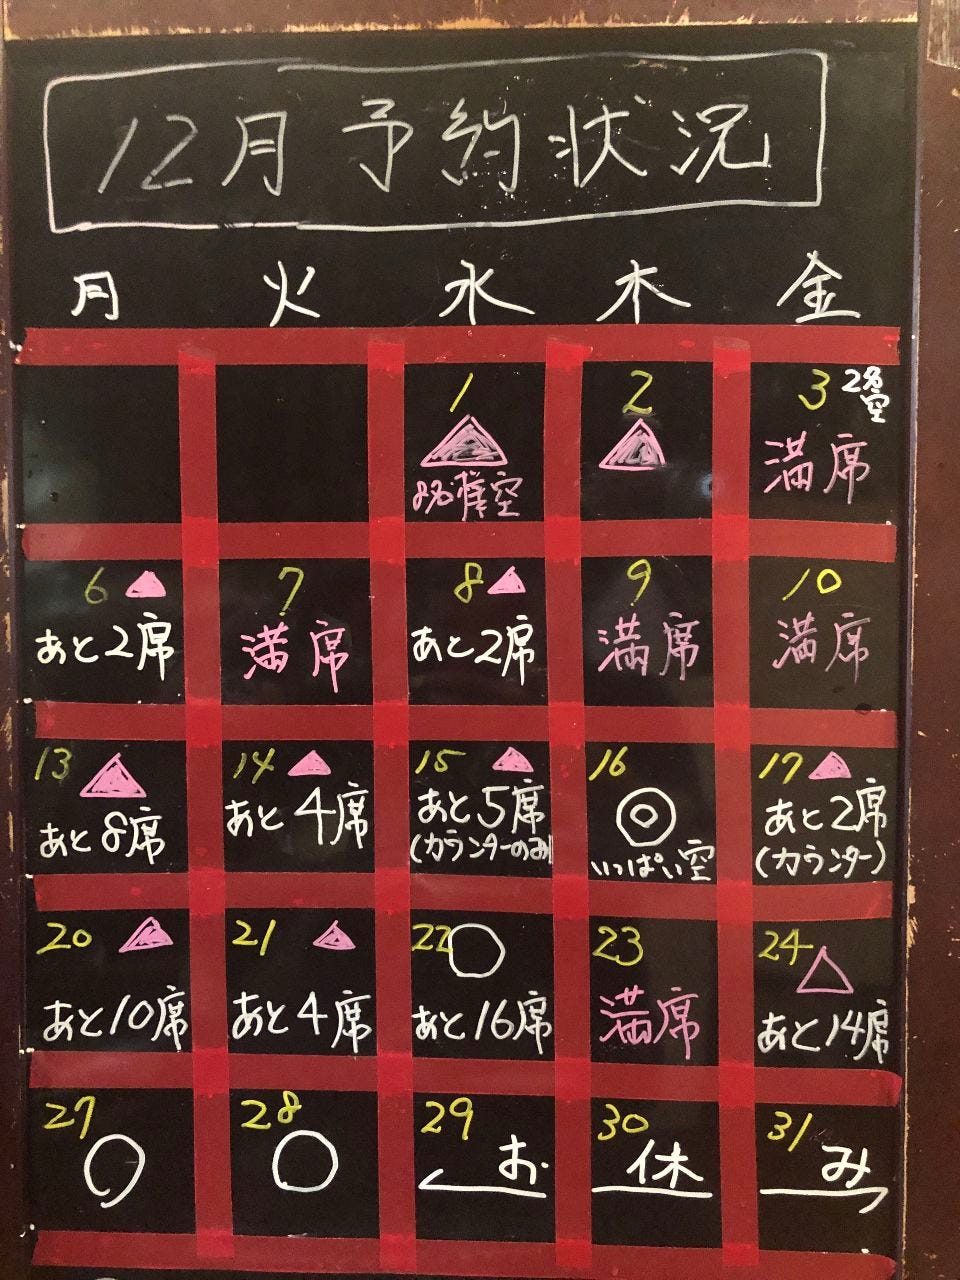 12月予約状況
月 火 水 木 金
1 2 3 2名空
▲ ▲ 満席
8名様空
6 ▲ 7 8 ▲ 9 10
あと2席 満席 あと2席 満席 満席
13 ▲ 14 ▲ 15 ▲ 16 17 ▲
あと8席 あと4席 あと5席 ◎ あと2席
(カウンターのみ) いっぱい空 (カウンター)
20 ▲ 21 ▲ 22 ○ 23 24 △
あと10席 あと4席 あと16席 満席 あと14席
27 28 29 30 31
○ ○ お 休 み